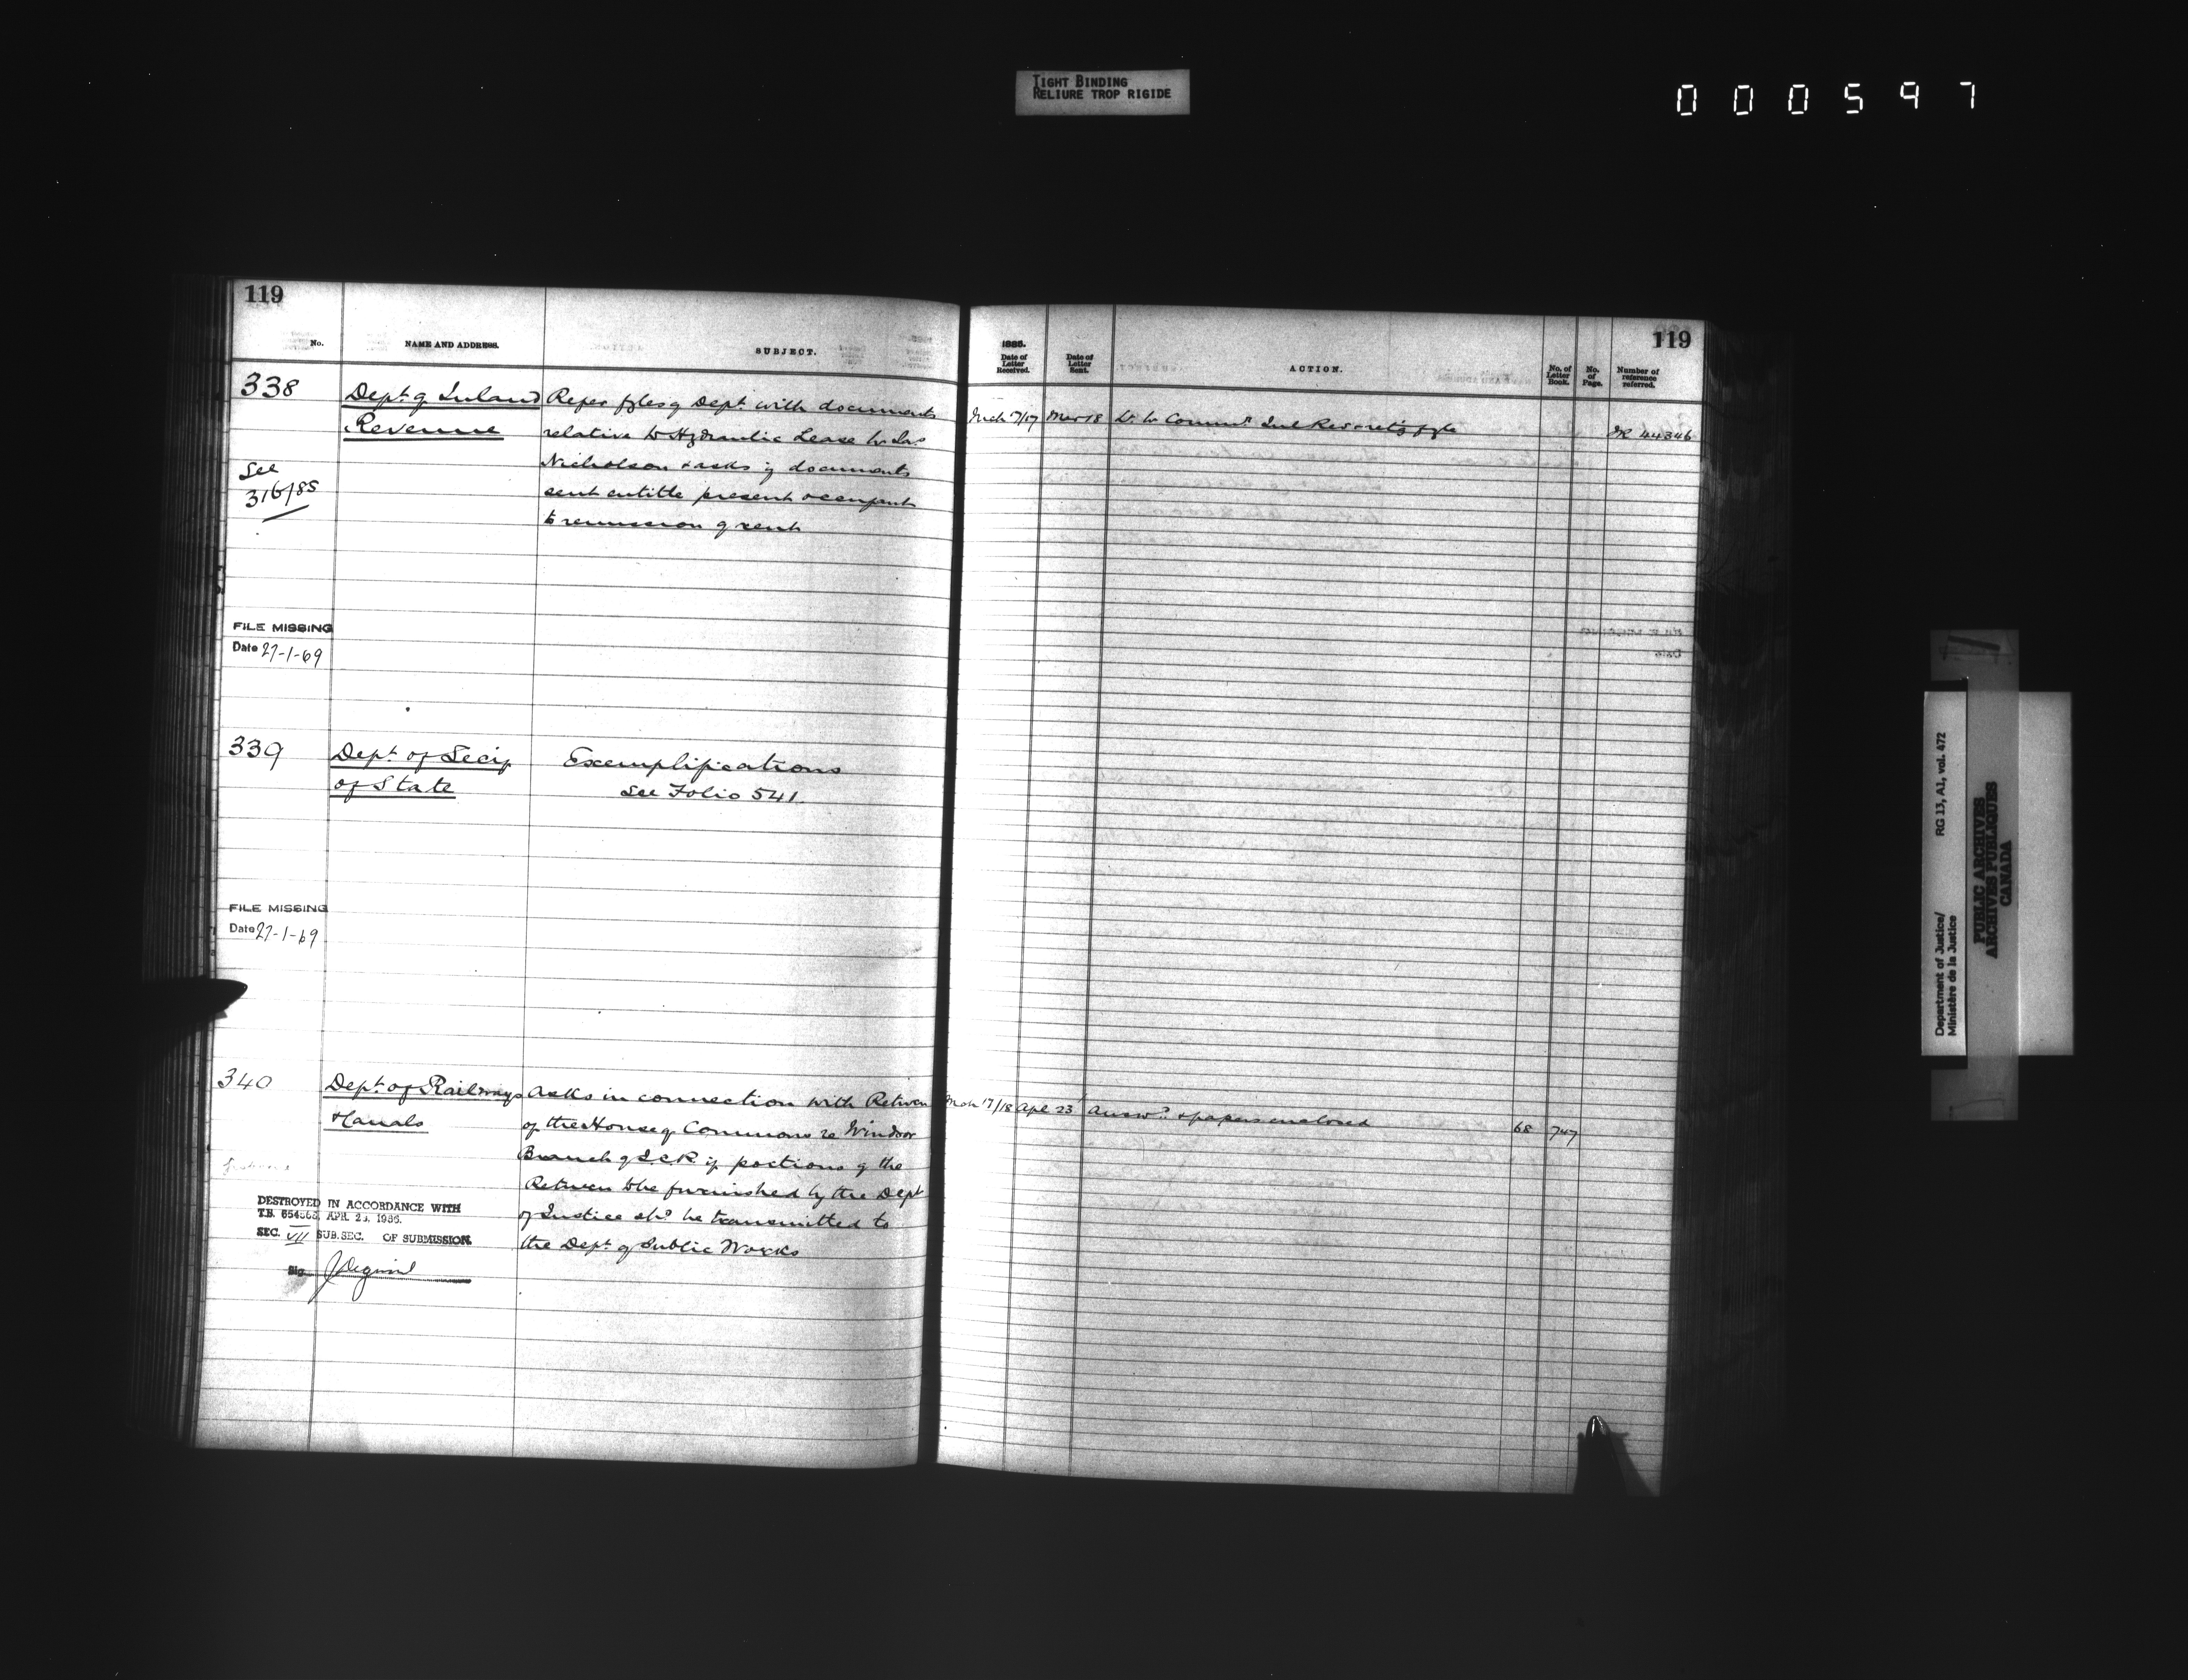 TIGHT BINDING
RELIURE TROP RIGIDE
000597
119
No.
NAME AND ADDRESS.
SUBJECT.
338
Dept. of Inland
Revenue
See
316/85
Refer fyles of Dept. with documents
relative to Hydraulic Lease to Jas
Nicholson & asks if documents
sent entitle present occupant
to remission of rent
FILE MISSING
Date 27-1-69
339
Dept. of Secy
of State
Exemplifications
See Folio 541.
FILE MISSING
Date 27-1-69
340
Dept. of Railways
& Canals
Asks in connection with Return
of the House of Commons re Windsor
Branch of I.C.R. if portions of the
Return to be furnished by the Dept
of Justice shd. be transmitted to
the Dept. of Public Works
DESTROYED IN ACCORDANCE WITH
T.B. APR. 23, 1956.
SEC. VII SUB.SEC. OF SUBMISSION.
Sig.
119
1886.
Date of
Letter
Received.
Date of
Letter
Sent.
ACTION.
No. of
Letter
Book.
No.
of
Page.
Number of
reference
referred.
Mch 17/17 Mar 18 L. to Commr. Inl Rev retg fyle
IR 44346
Mch 17/18 Apl 23 Answd. & papers enclosed 68 747
Department of Justice/
Ministère de la Justice
RG 13, A1, vol. 472
PUBLIC ARCHIVES
ARCHIVES PUBLIQUES
CANADA